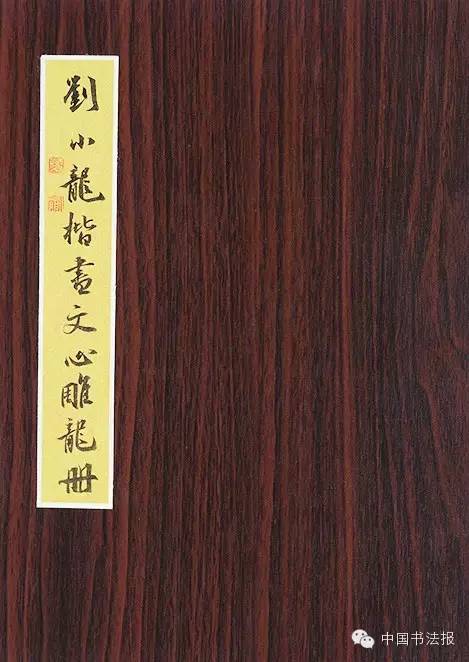 劉小龍楷書文心雕龍冊
中国书法报